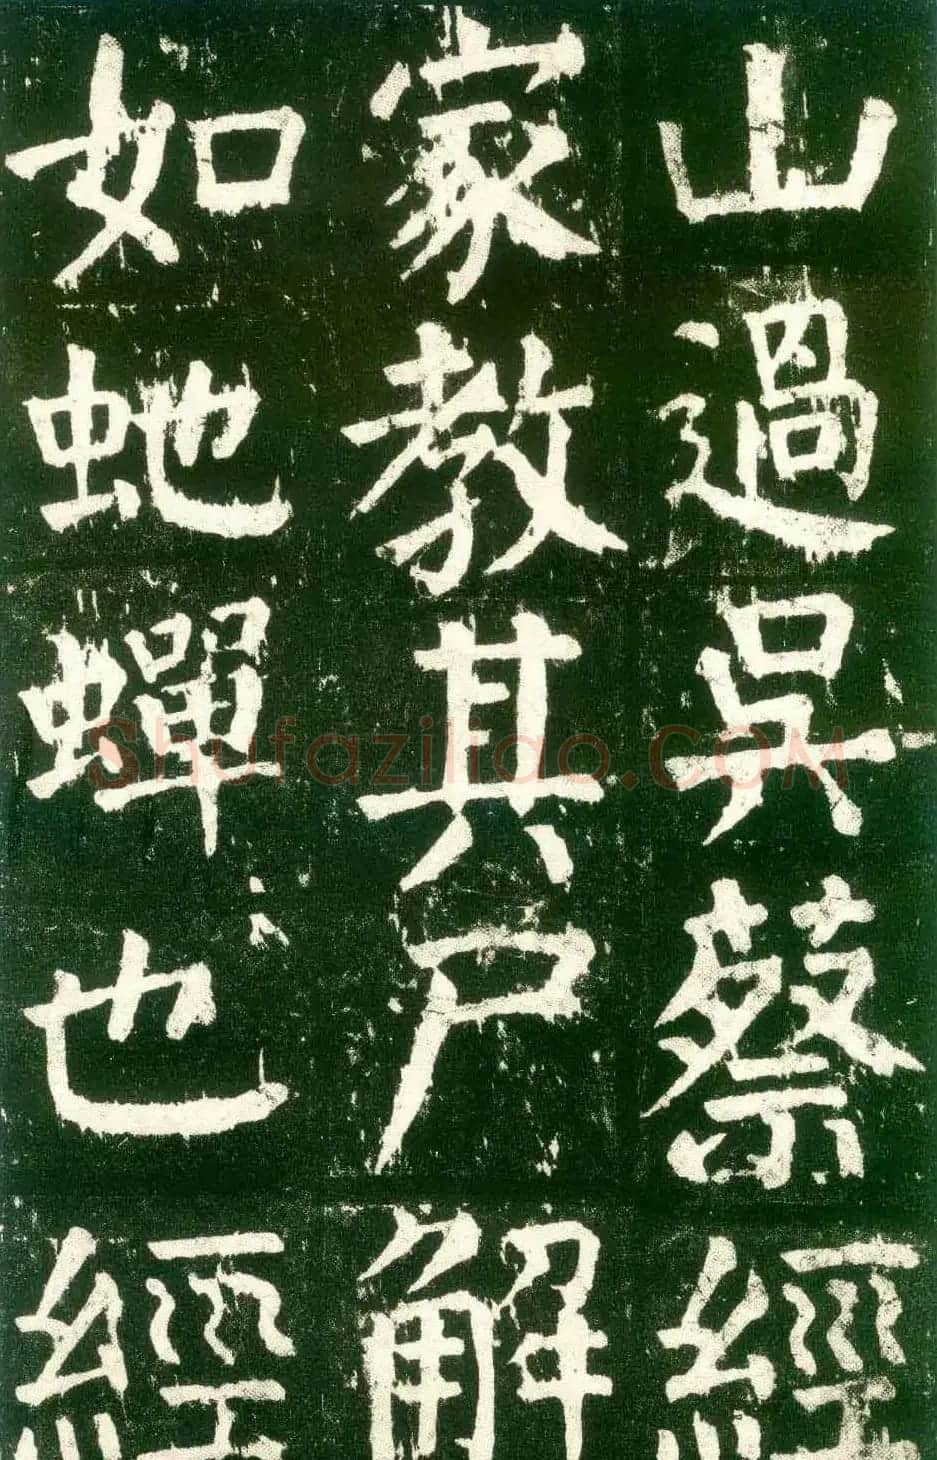 山過吳蔡經
家教其尸解
如虵蟬也經
Shufaziliao.COM